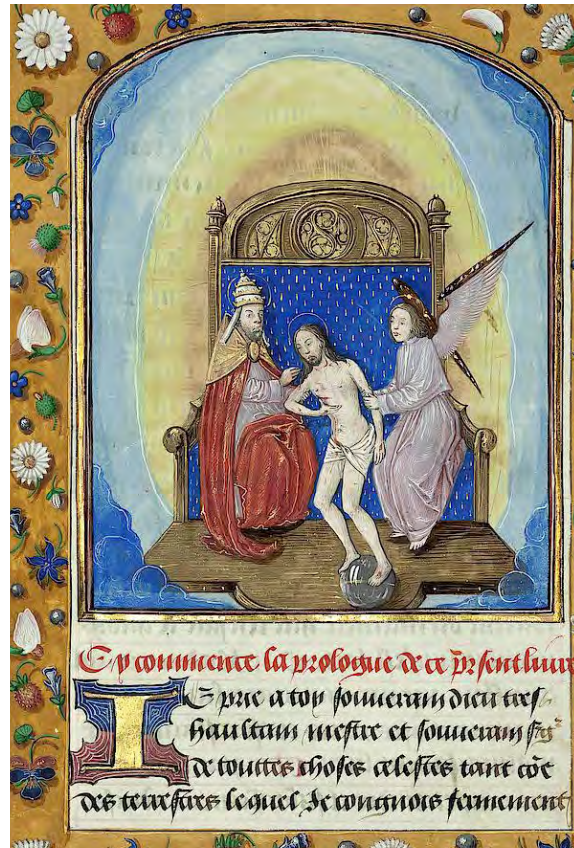 Cy commence la prologue de ce p̄rsent livre
IE prie a toy souverain dieu tres
haultain mestre et souverain sgr
de touttes choses celestes tant cōe
des terrestres lequel Je congnois fermement